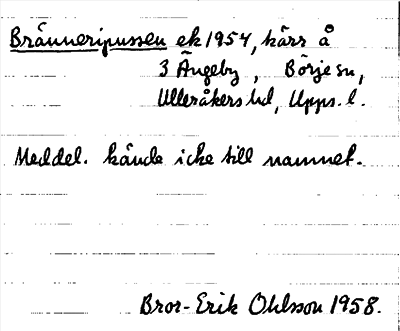 Bränneripussen ek 1954, kärr å
3 Ängeby, Börje sn,
Ulleråkers hd, Upps. l.
Meddel. kände icke till namnet.
Bror-Erik Ohlsson 1958.